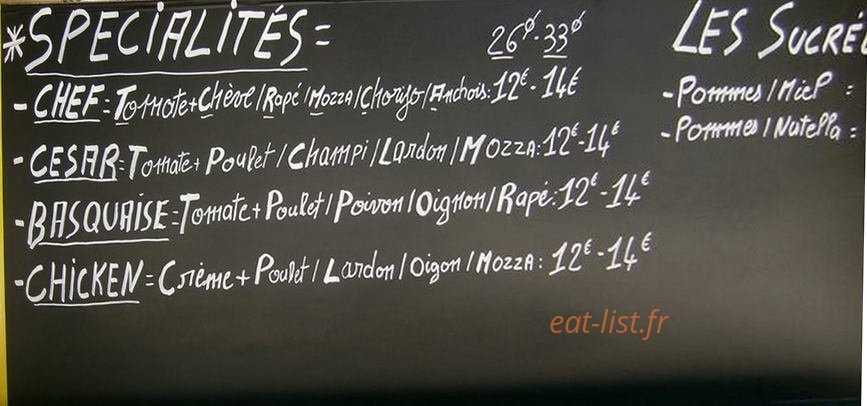 *SPECIALITÉS= 26ø-33ø
- CHEF= Tomate+Chève/Rapé/Mozza/Chorizo/Anchois:12€-14€
- CESAR=Tomate+Poulet/Champi/Lardon/Mozza:12€-14€
- BASQUAISE=Tomate+Poulet/Poivon/Oignon/Rapé:12€-14€
- CHICKEN=Crème+Poulet/Lardon/Oigon/Mozza: 12€-14€
LES SUCRÉ
- Pommes/Miel :
- Pommes/Nutella :
eat-list.fr